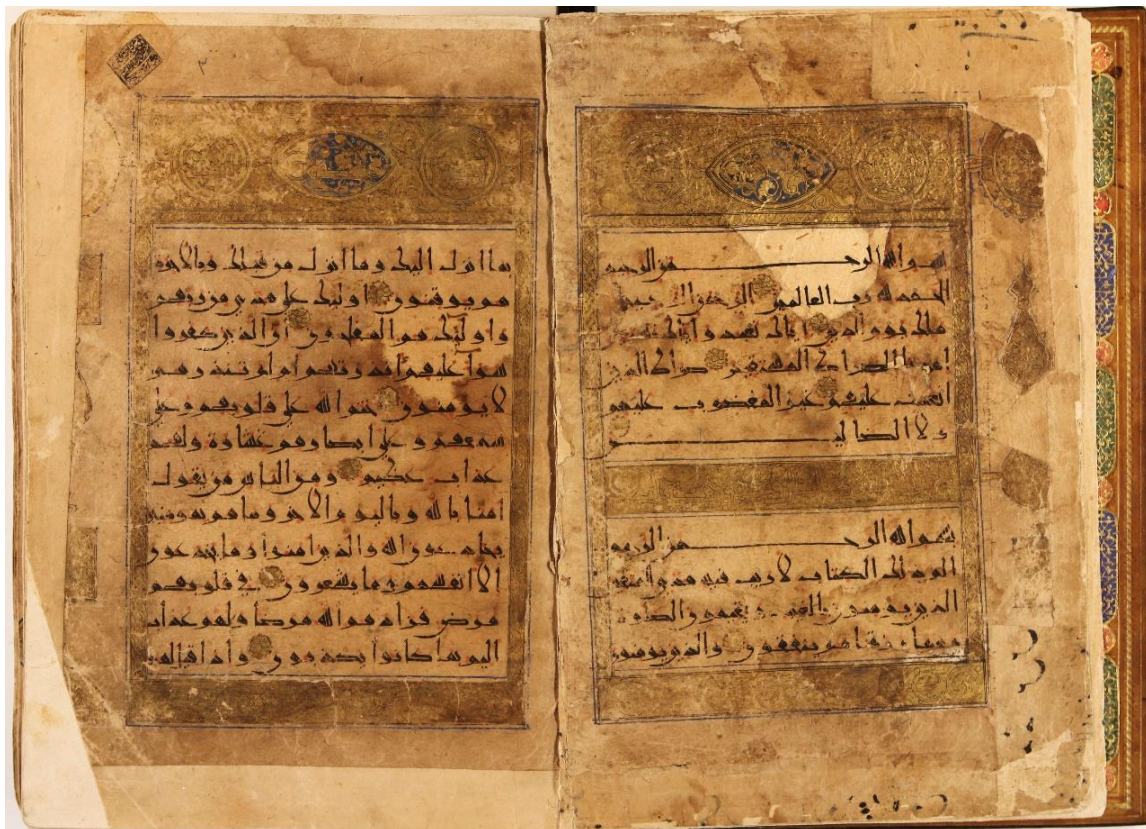 بسم الله الرحمن الرحيم
الحمد لله رب العالمين الرحمن الرحيم
ملك يوم الدين اياك نعبد واياك نستعين
اهدنا الصراط المستقيم صراط الذين
انعمت عليهم غير المغضوب عليهم
ولا الضالين
بسم الله الرحمن الرحيم
الم ذلك الكتاب لا ريب فيه هدى للمتقين
الذين يومنون بالغيب ويقيمون الصلوة
ومما رزقناهم ينفقون والذين يومنون
بما انزل اليك وما انزل من قبلك وبالاخرة
هم يوقنون اولئك على هدى من ربهم
واولئك هم المفلحون ان الذين كفروا
سوا عليهم اانذرتهم ام لم تنذرهم
لا يومنون ختم الله على قلوبهم وعلى
سمعهم وعلى ابصارهم غشاوة ولهم
عذاب عظيم ومن الناس من يقول
امنا بالله وباليوم الاخر وما هم بمومنين
يخادعون الله والذين امنوا وما يخدعون
الا انفسهم وما يشعرون في قلوبهم
مرض فزادهم الله مرضا ولهم عذاب
اليم بما كانوا يكذبون واذا قيل لهم
٣